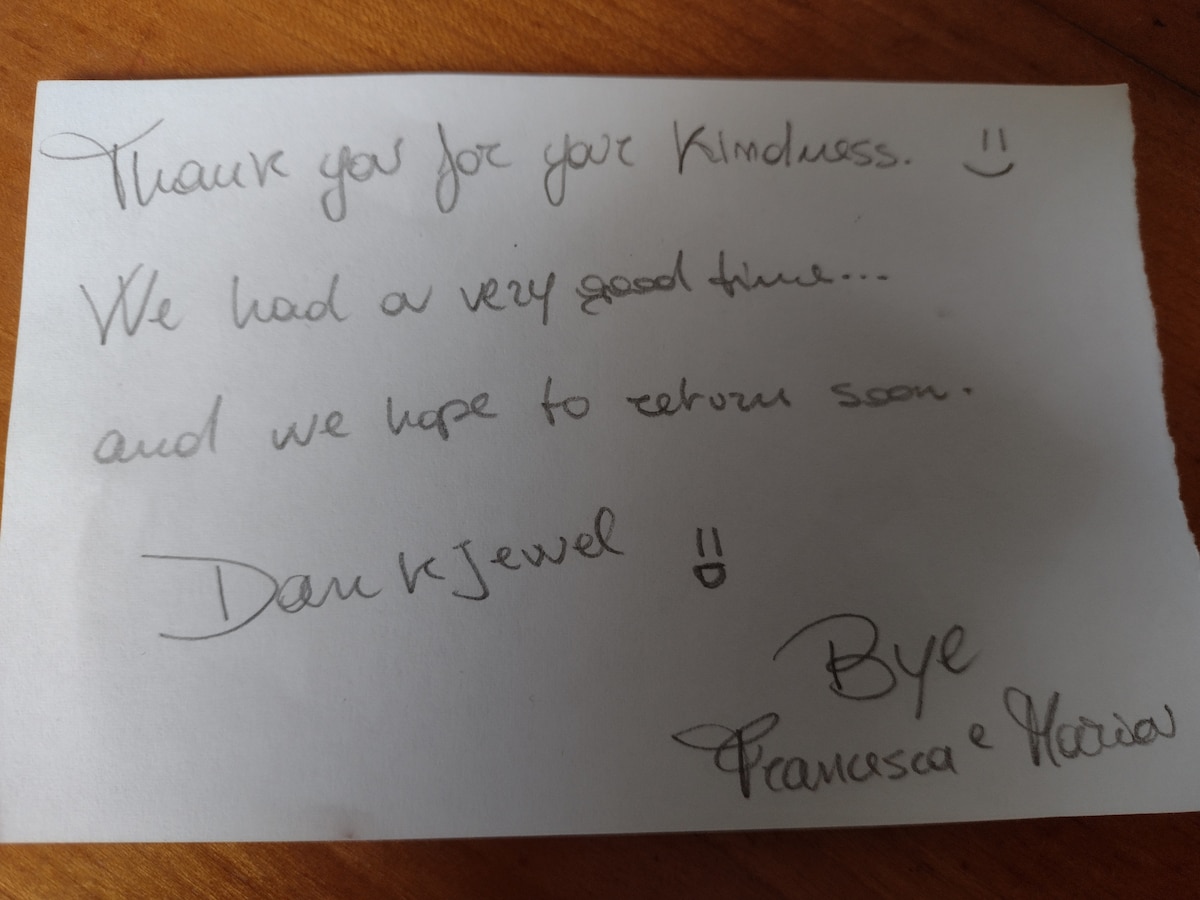 Thank you for your Kindness. :)
We had a very good time...
and we hope to return soon.
Dankjewel :D
Bye
Francesca e Maria